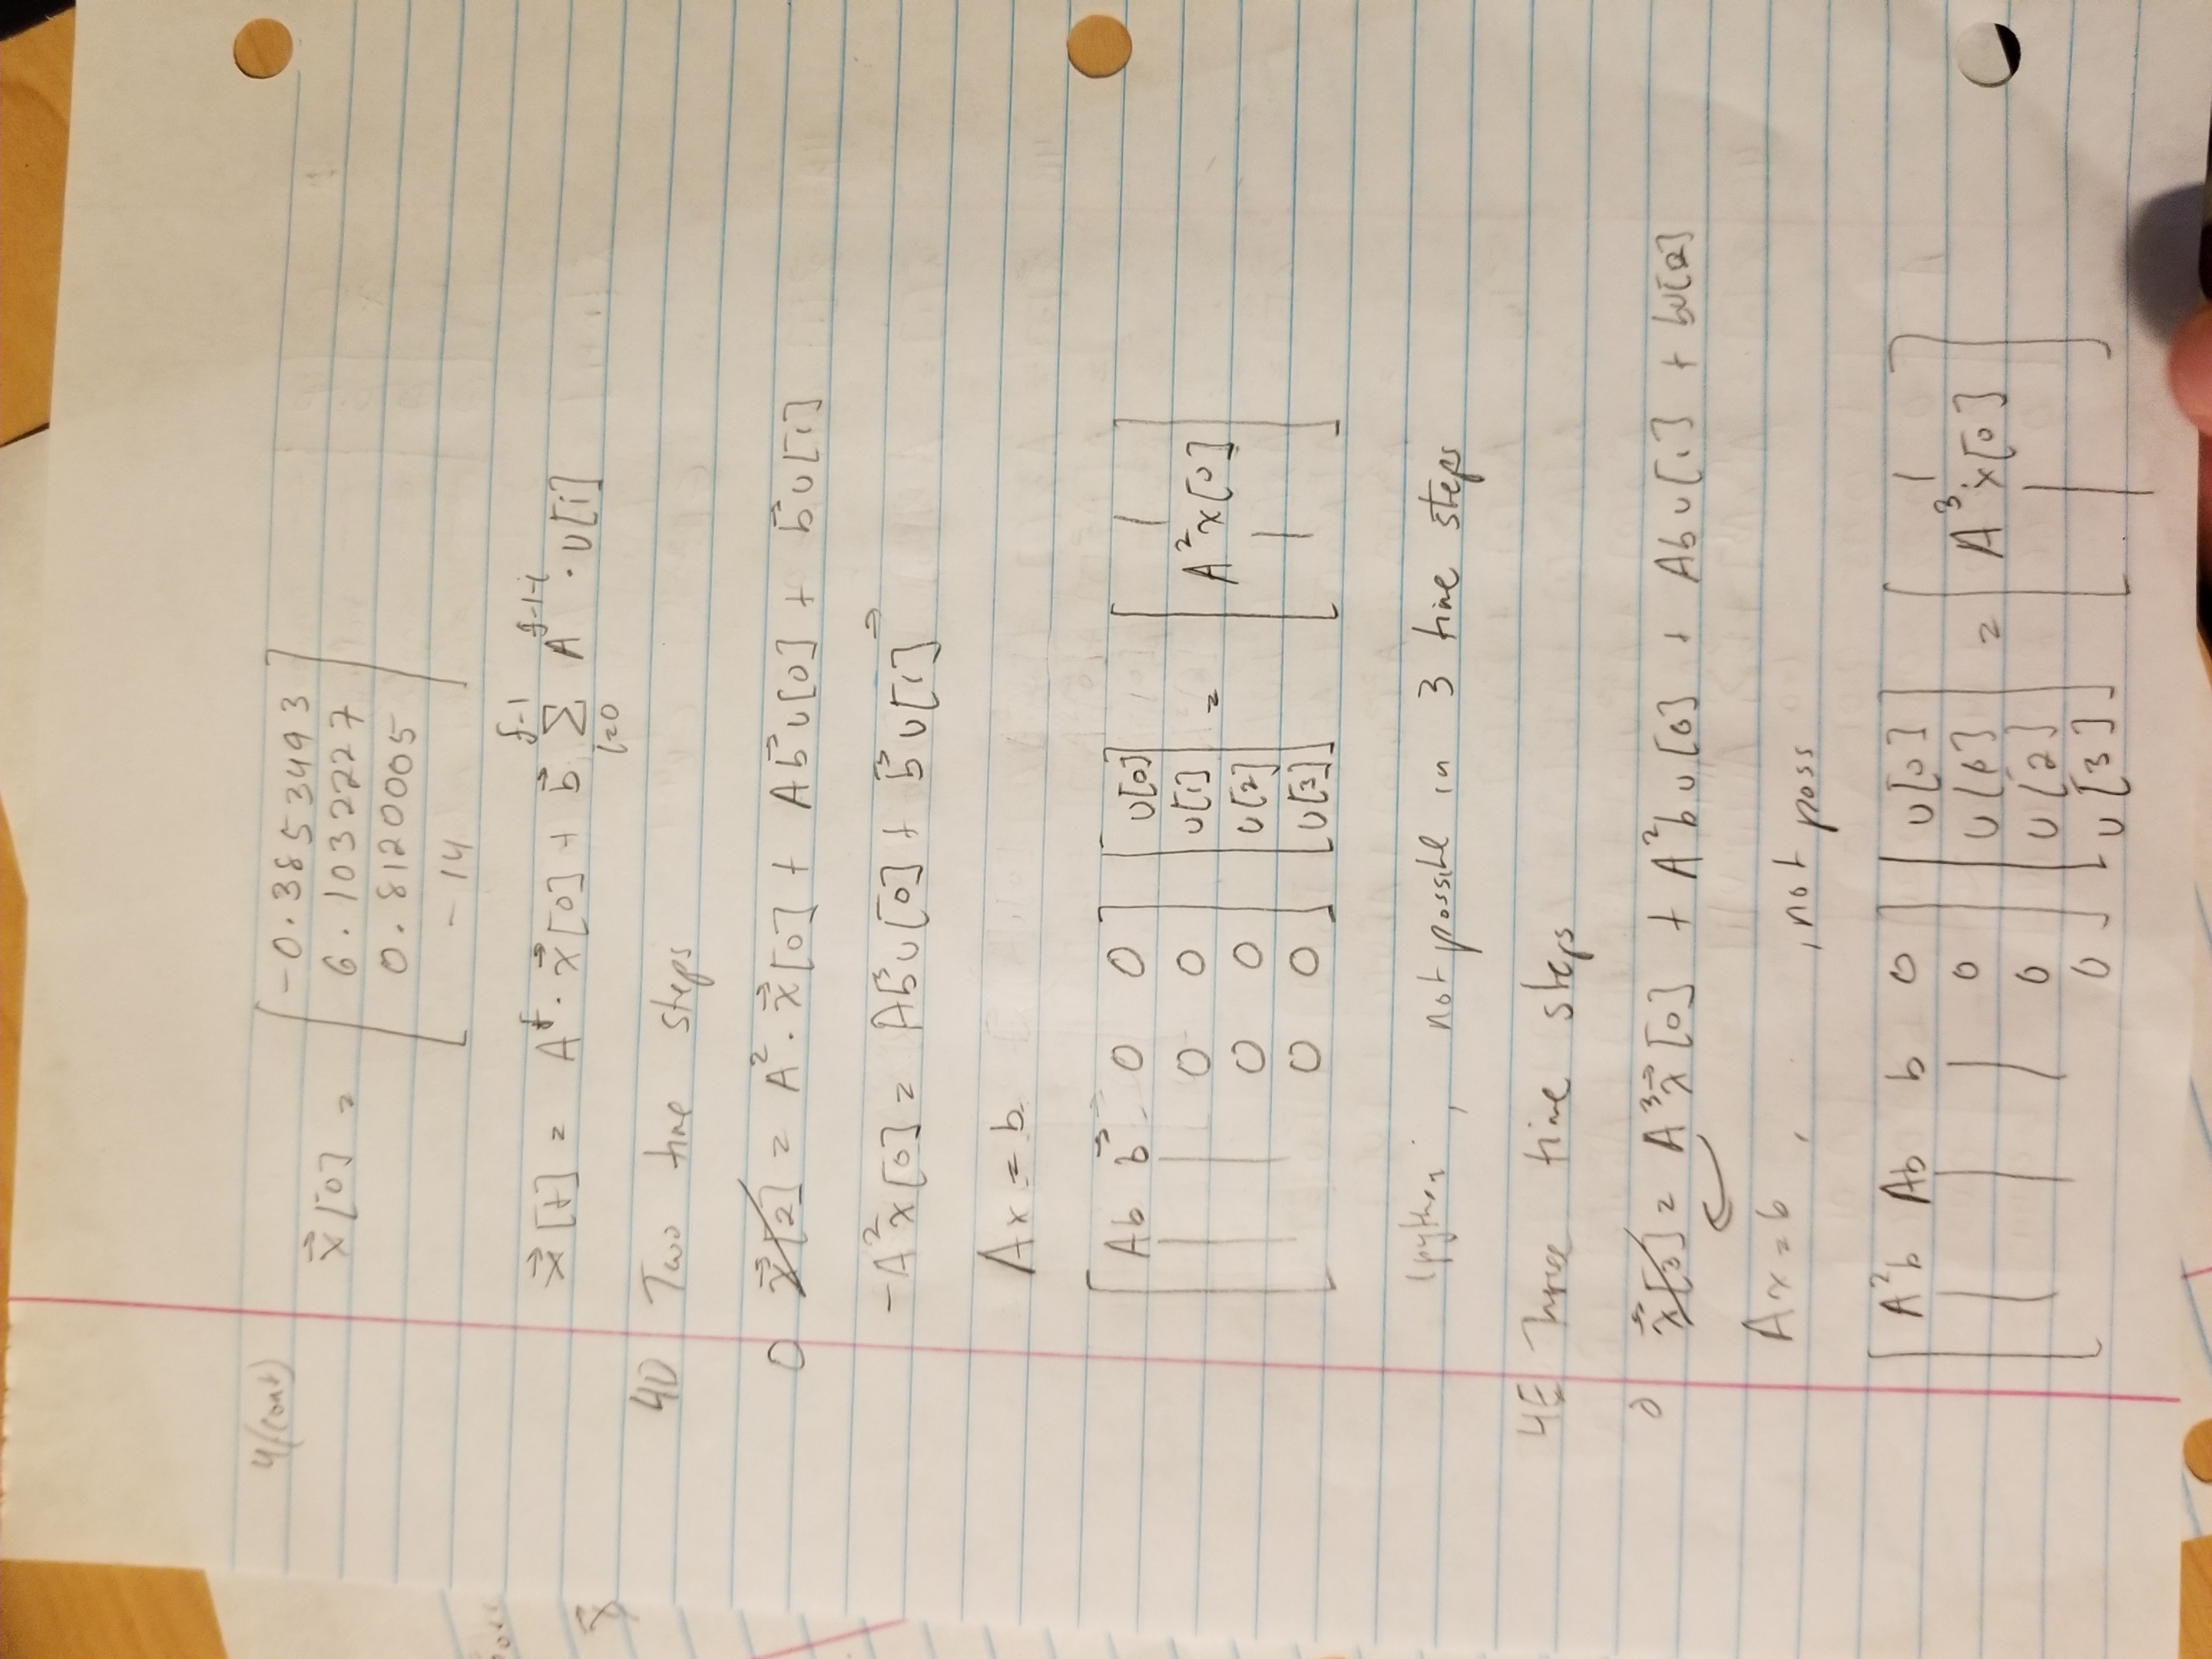 4(cont)
x⃗[0] = [ -0.3853493
6.1032227
0.8120005
-14 ]
x⃗[t] = A^t · x⃗[0] + b⃗ Σ_{i=0}^{t-1} A^{t-1-i} · u[i]
4D Two time steps
0 x⃗[2] = A² · x⃗[0] + A b⃗ u[0] + b⃗ u[1]
-A²x[0] = A b⃗ u[0] + b⃗ u[1]→
Ax = b
[ Ab b⃗ 0 0 ] [ u[0] ] = [ | ]
| | 0 0 u[1] A²x[0]
| | 0 0 u[2] |
0 0 u[3]
ipython, not possible in 3 time steps
4E Three time steps
0 x⃗[3] = A³x⃗[0] + A²b u[0] + Ab u[1] + bu[2]
Ax = b , , not poss
[ A²b Ab b 0 ] [ u[0] ] = [ | ]
| | | 0 u[1] A³x[0]
| | | 0 u[2] |
0 u[3]